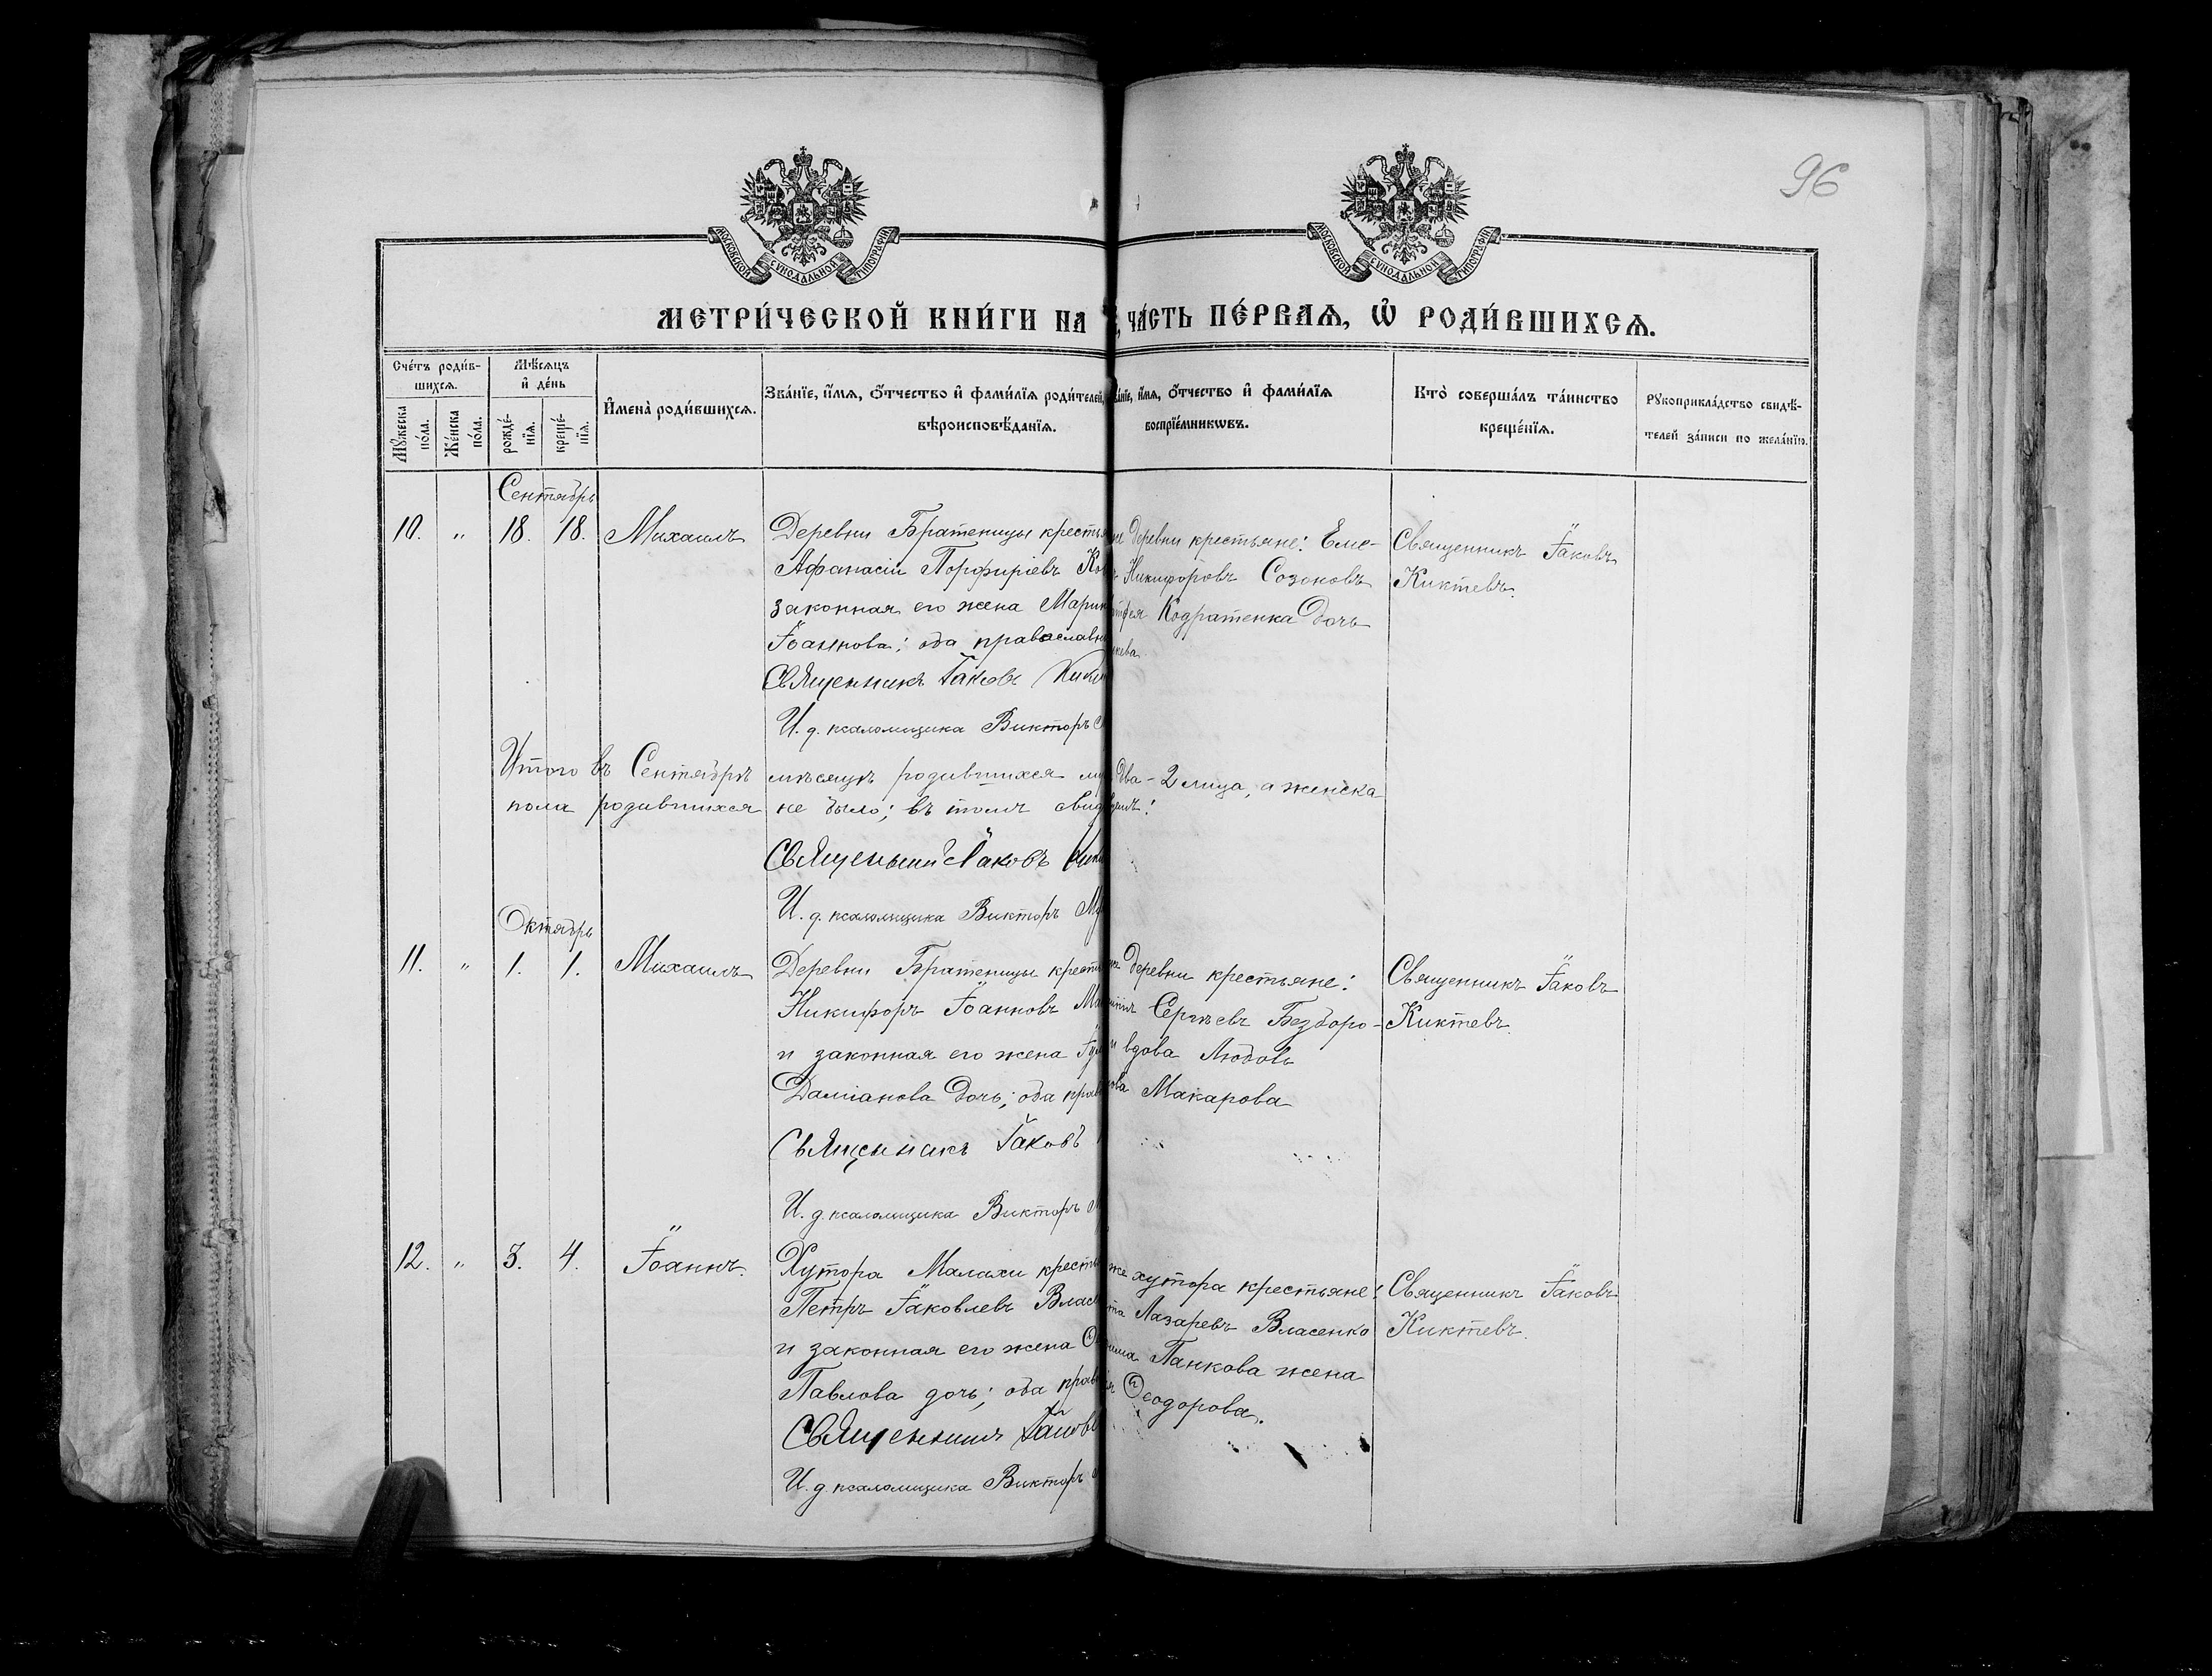 96
МОСКОВСКОЙ СѴНОДАЛЬНОЙ ТИПОГРАФІИ
МОСКОВСКОЙ СѴНОДАЛЬНОЙ ТИПОГРАФІИ
МЕТРИ́ЧЕСКОЙ КНИ́ГИ НА ЧА́СТЬ ПЕ́РВАѦ, Ѡ҆ РОДИ́ВШИХСѦ.
Сче́тъ роди́в-
шихсѧ.
Мꙋ́жеска по́ла.
Же́нска по́ла.
Мѣ́сѧцъ
и҆ де́нь
рожде́-
нїѧ.
креще́-
нїѧ.
И҆мена̀ роди́вшихсѧ.
Зва́нїе, и҆́мѧ, ѻ҆́тчество и҆ фами́лїѧ роди́телей,
вѣроисповѣ́данїѧ.
и҆́мѧ, ѻ҆́тчество и҆ фами́лїѧ
воспрїе́мникѡвъ.
Кто̀ соверша́лъ та́инство
креще́нїѧ.
Рꙋкоприкла́дство свидѣ́-
телей за́писи по жела́нїю.
Сентябрь
10. " 18. 18. Михаилъ
Деревни Братеницы
Афанасій Порфиріевъ
законная его жена
Іоаннова; оба
Священникъ Іаковъ
И. д. псаломщика Викторъ
деревни крестьяне: Еме-
Никифоровъ Созоновъ
Кодратенка дочь
Священникъ Іаковъ
Киктевъ.
Итого въ Сентябрѣ мѣсяцѣ родившихся два - 2 лица, а женска
пола родившихся не было; въ томъ
Священникъ Іаковъ
И. д. псаломщика Викторъ
Октябрь
11. " 1. 1. Михаилъ
Деревни Братеницы
Никифоръ Іоанновъ
и законная его жена
Даміанова дочь; оба
Священникъ Іаковъ
И. д. псаломщика Викторъ
деревни крестьяне:
Сергѣевъ Безборо-
и вдова Любовь
Макарова
Священникъ Іаковъ
Киктевъ.
12. " 3. 4. Іоаннъ.
Хутора Малахи
Петръ Іаковлевъ
и законная его жена
Павлова дочь; оба
Священникъ Іаковъ
И. д. псаломщика Викторъ
же хутора крестьяне:
Лазаревъ Власенко
Панкова жена
Ѳеодорова.
Священникъ Іаковъ
Киктевъ.